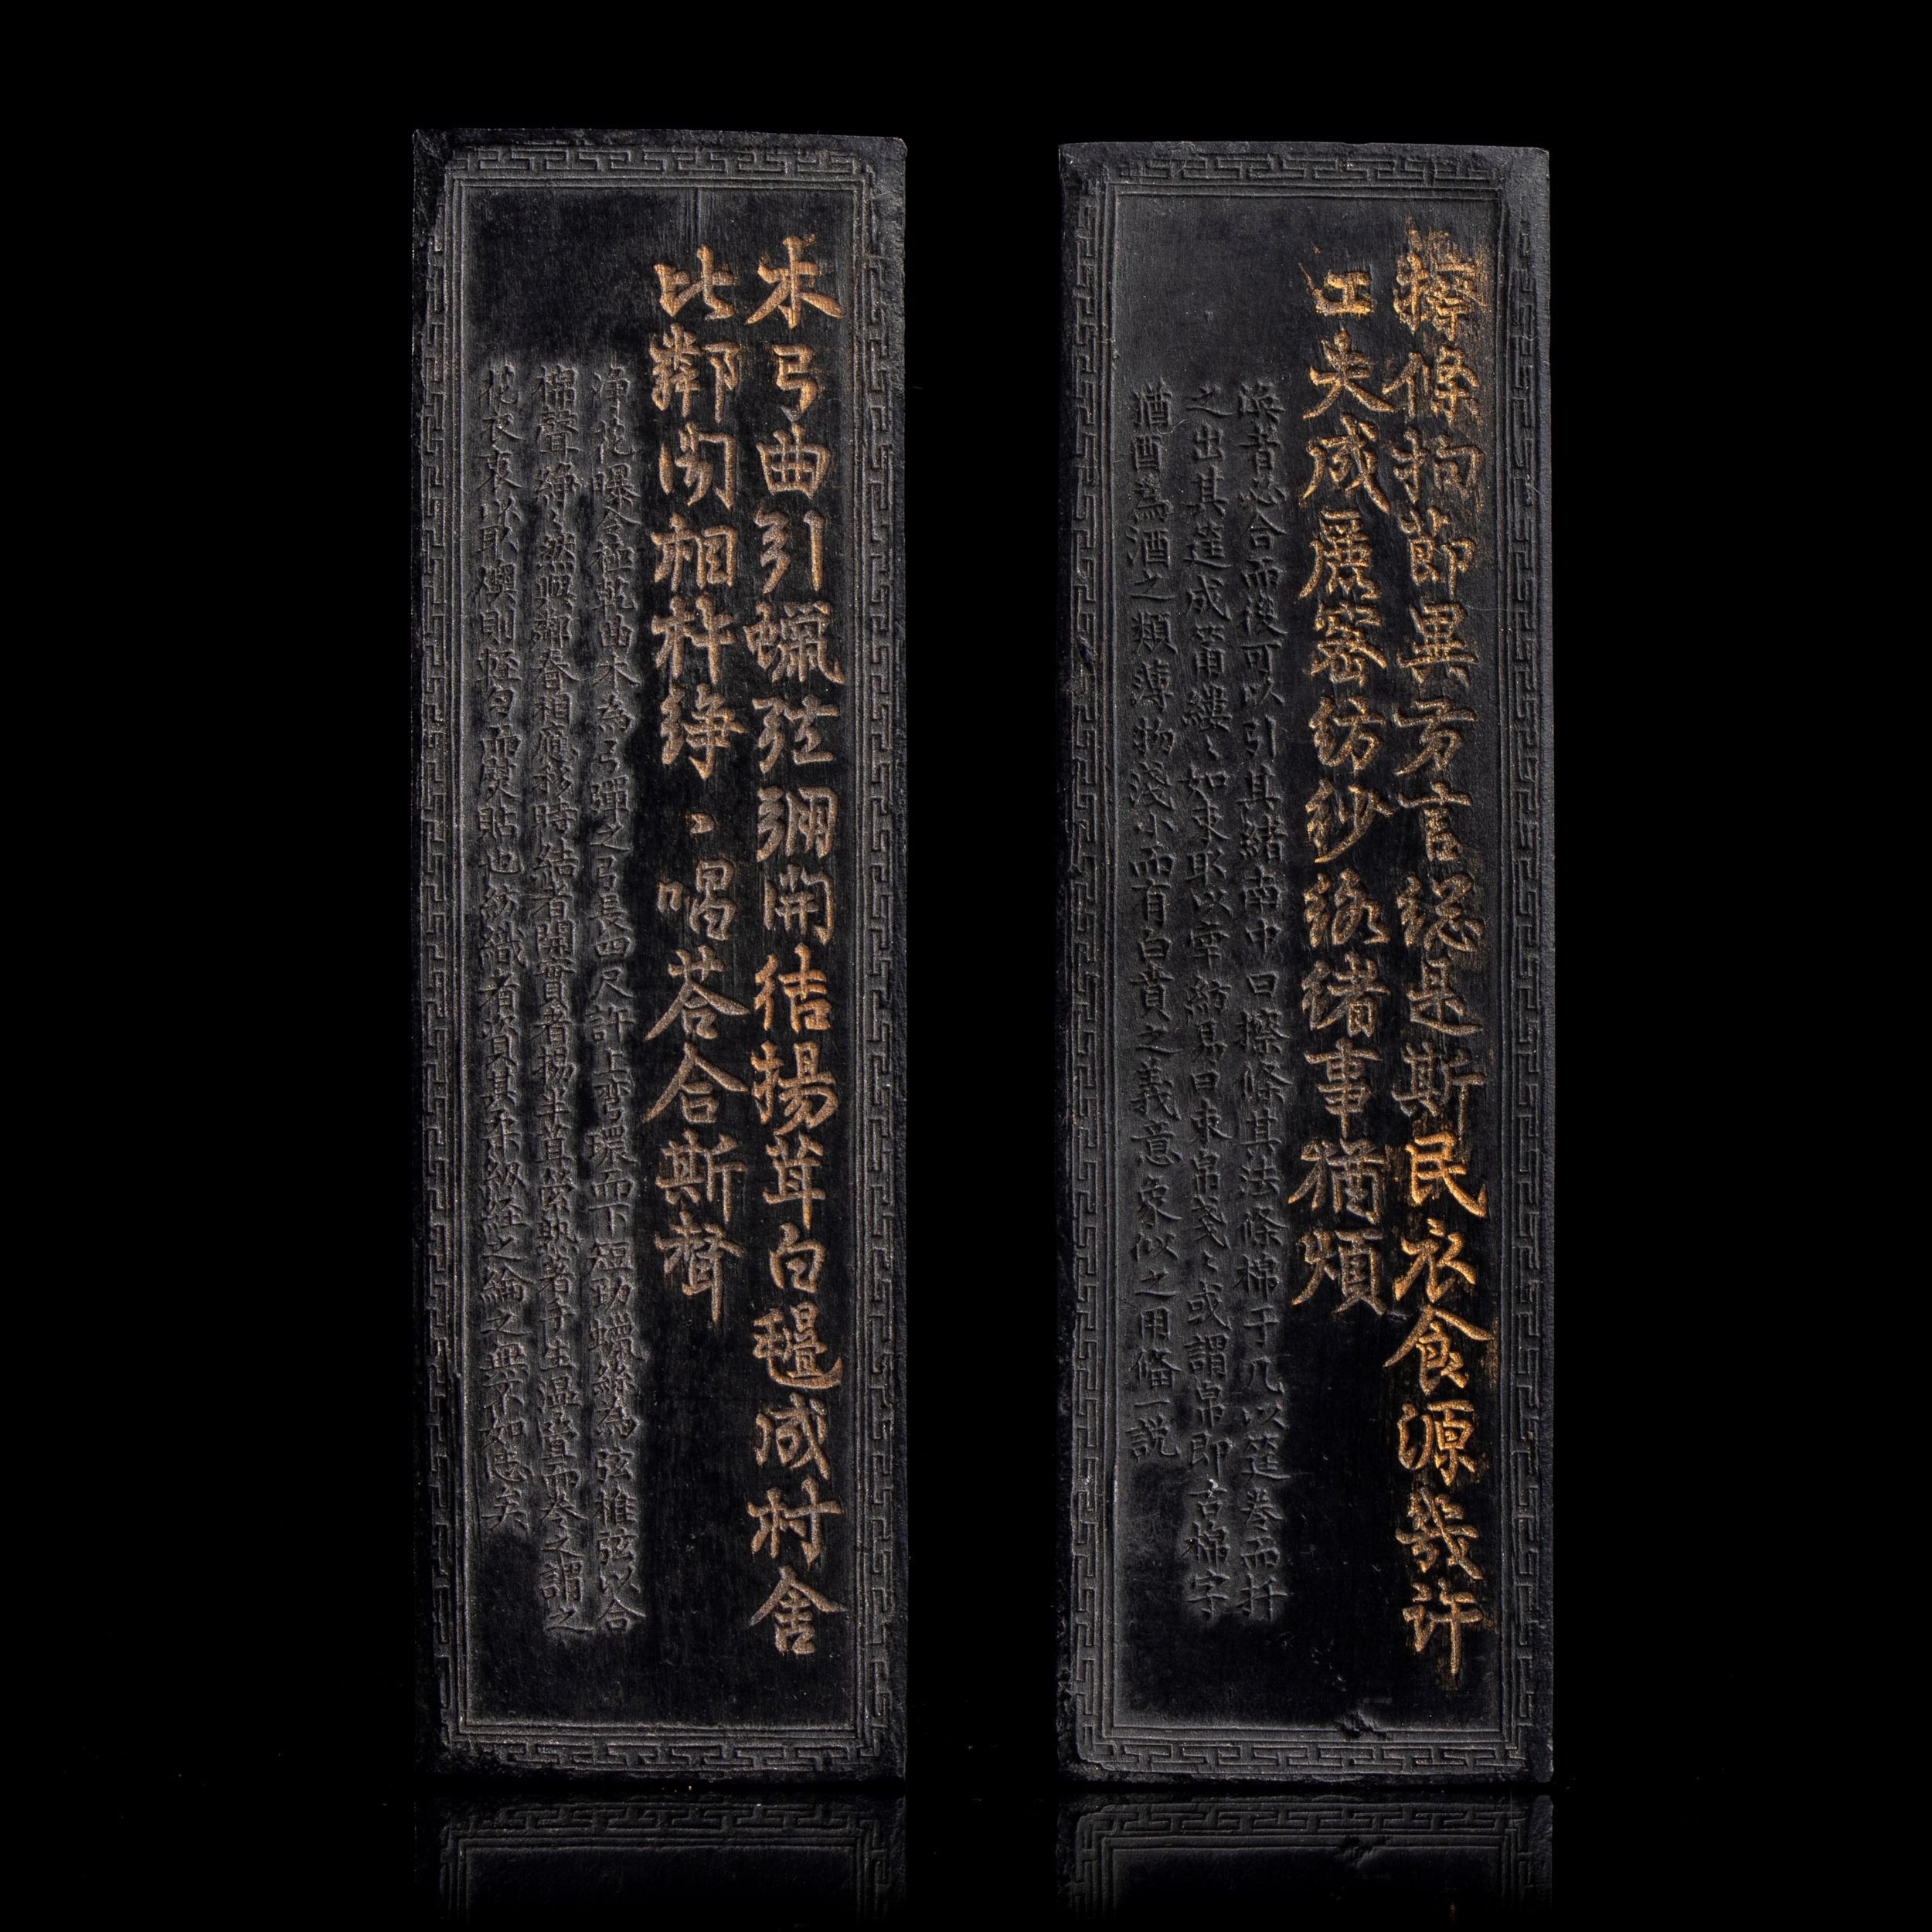 木弓曲引蠟弦弸開結揚茸白氎成村舍
比鄰聞相杵錚〻唱荅合斯聲
淨花曝令極乾曲木為弓彈之弓長四尺許上彎環而下短勁蠟絲為弦椎弦以合
棉聲錚〻然與鄰舂相應移時結者開實者揚丰茸縈熟著手生温疊而卷之謂之
花衣衷以取煗則輕勻而熨貼也紡織者資其柔紉經之綸之無不如志矣
擦條拘節異方言總是斯民衣食源幾許
工夫成麗密紡紗絡緒事猶煩
渙者必合而後可以引其緒南中曰擦條其法條棉于几以筳卷而扦
之出其筳成筩縷〻如束取以牽紡易曰束帛戔〻或謂帛即古棉字
猶酉為酒之類薄物淺小而有白賁之義意象似之用備一說